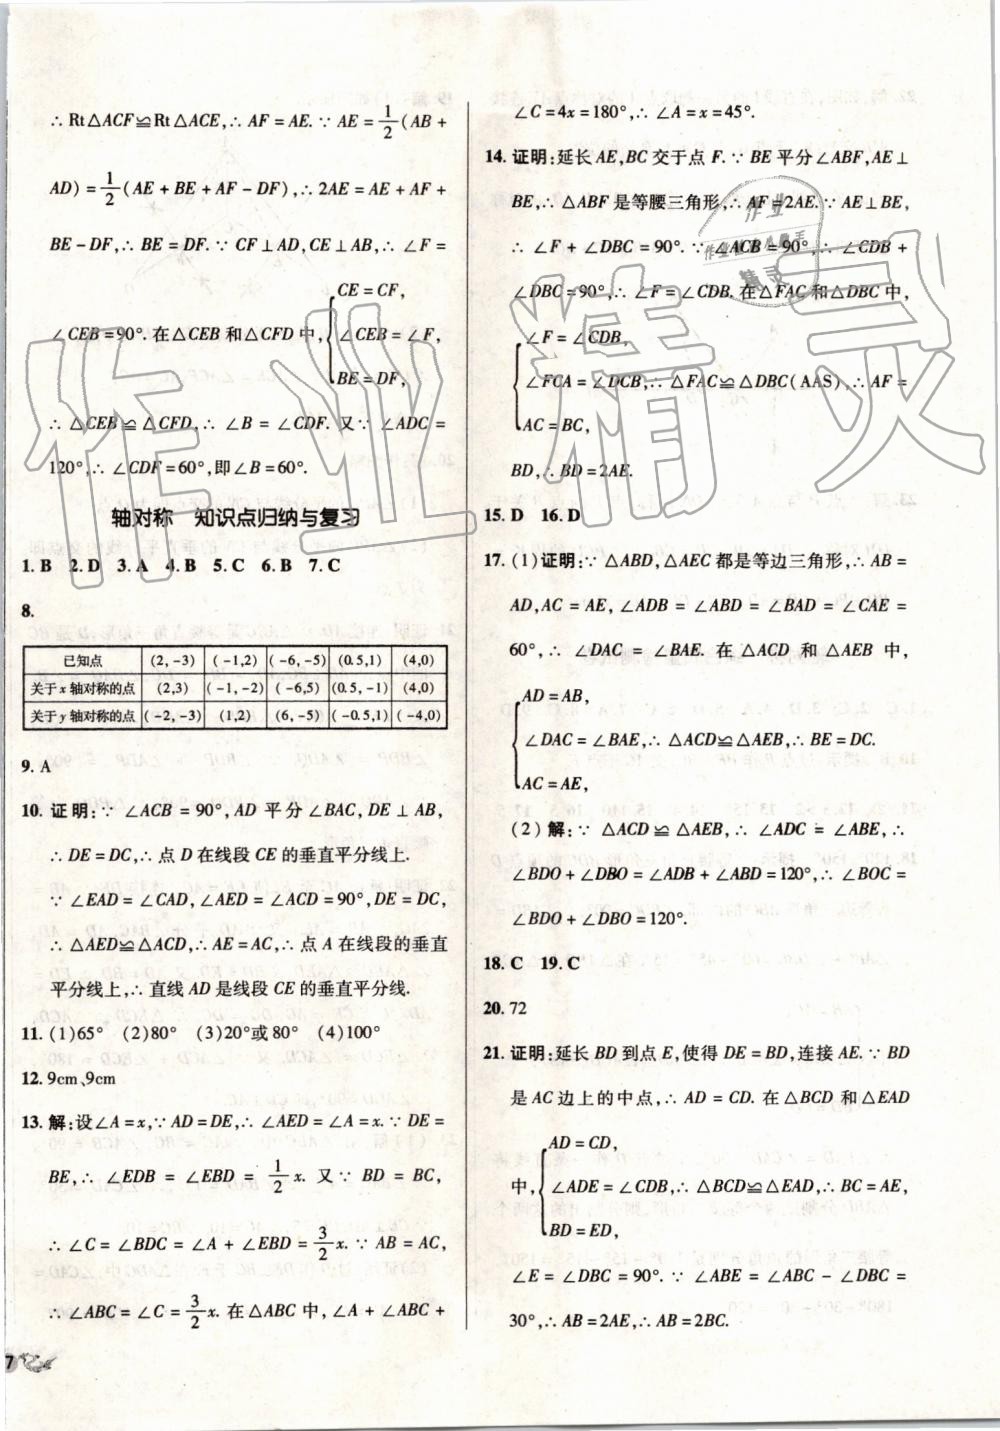 ∴ Rt△ACF≌Rt△ACE,∴ AF = AE. ∵ AE = 1/2 (AB +
AD) = 1/2 (AE + BE + AF - DF),∴ 2AE = AE + AF +
BE - DF,∴ BE = DF. ∵ CF⊥AD,CE⊥AB,∴ ∠F =
∠CEB = 90°. 在△CEB 和△CFD 中,
CE = CF,
∠CEB = ∠F,
BE = DF,
∴ △CEB≌△CFD,∴ ∠B = ∠CDF. 又∵ ∠ADC =
120°,∴ ∠CDF = 60°,即∠B = 60°.
轴对称 知识点归纳与复习
1. B 2. D 3. A 4. B 5. C 6. B 7. C
8.
已知点 (2, -3) (-1,2) (-6, -5) (0.5,1) (4,0)
关于 x 轴对称的点 (2,3) (-1, -2) (-6,5) (0.5, -1) (4,0)
关于 y 轴对称的点 (-2, -3) (1,2) (6, -5) (-0.5,1) (-4,0)
9. A
10. 证明:∵ ∠ACB = 90°,AD 平分∠BAC,DE⊥AB,
∴ DE = DC,∴ 点 D 在线段 CE 的垂直平分线上.
∵ ∠EAD = ∠CAD,∠AED = ∠ACD = 90°,DE = DC,
∴ △AED≌△ACD,∴ AE = AC,∴ 点 A 在线段的垂直
平分线上,∴ 直线 AD 是线段 CE 的垂直平分线.
11. (1)65° (2)80° (3)20°或 80° (4)100°
12. 9cm、9cm
13. 解:设∠A = x,∵ AD = DE,∴ ∠AED = ∠A = x. ∵ DE =
BE,∴ ∠EDB = ∠EBD = 1/2 x. 又∵ BD = BC,
∴ ∠C = ∠BDC = ∠A + ∠EBD = 3/2 x. ∵ AB = AC,
∴ ∠ABC = ∠C = 3/2 x. 在△ABC 中,∠A + ∠ABC +
7
∠C = 4x = 180°,∴ ∠A = x = 45°.
14. 证明:延长 AE,BC 交于点 F. ∵ BE 平分∠ABF,AE⊥
BE,∴ △ABF 是等腰三角形,∴ AF = 2AE. ∵ AE⊥BE,
∴ ∠F + ∠DBC = 90°. ∵ ∠ACB = 90°,∴ ∠CDB +
∠DBC = 90°,∴ ∠F = ∠CDB. 在△FAC 和△DBC 中,
∠F = ∠CDB,
∠FCA = ∠DCB,∴ △FAC≌△DBC(AAS),∴ AF =
AC = BC,
BD,∴ BD = 2AE.
15. D 16. D
17. (1)证明:∵ △ABD,△AEC 都是等边三角形,∴ AB =
AD,AC = AE,∠ADB = ∠ABD = ∠BAD = ∠CAE =
60°,∴ ∠DAC = ∠BAE. 在△ACD 和△AEB 中,
AD = AB,
∠DAC = ∠BAE,∴ △ACD≌△AEB,∴ BE = DC.
AC = AE,
(2)解:∵ △ACD≌△AEB,∴ ∠ADC = ∠ABE,∴
∠BDO + ∠DBO = ∠ADB + ∠ABD = 120°,∴ ∠BOC =
∠BDO + ∠DBO = 120°.
18. C 19. C
20. 72
21. 证明:延长 BD 到点 E,使得 DE = BD,连接 AE. ∵ BD
是 AC 边上的中点,∴ AD = CD. 在△BCD 和△EAD
中,
AD = CD,
∠ADE = ∠CDB,∴ △BCD≌△EAD,∴ BC = AE,
BD = ED,
∠E = ∠DBC = 90°. ∵ ∠ABE = ∠ABC - ∠DBC =
30°,∴ AB = 2AE,∴ AB = 2BC.
作业精灵